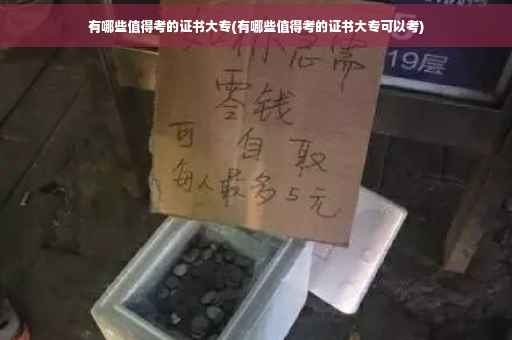 有哪些值得考的证书大专(有哪些值得考的证书大专可以考)
急需
19层
零钱
可自取
每人最多5元